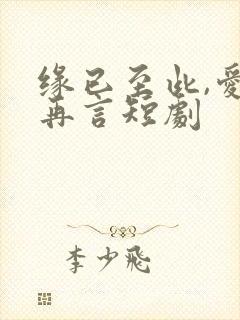 缘已至此,爱
再言短劇
李少飛